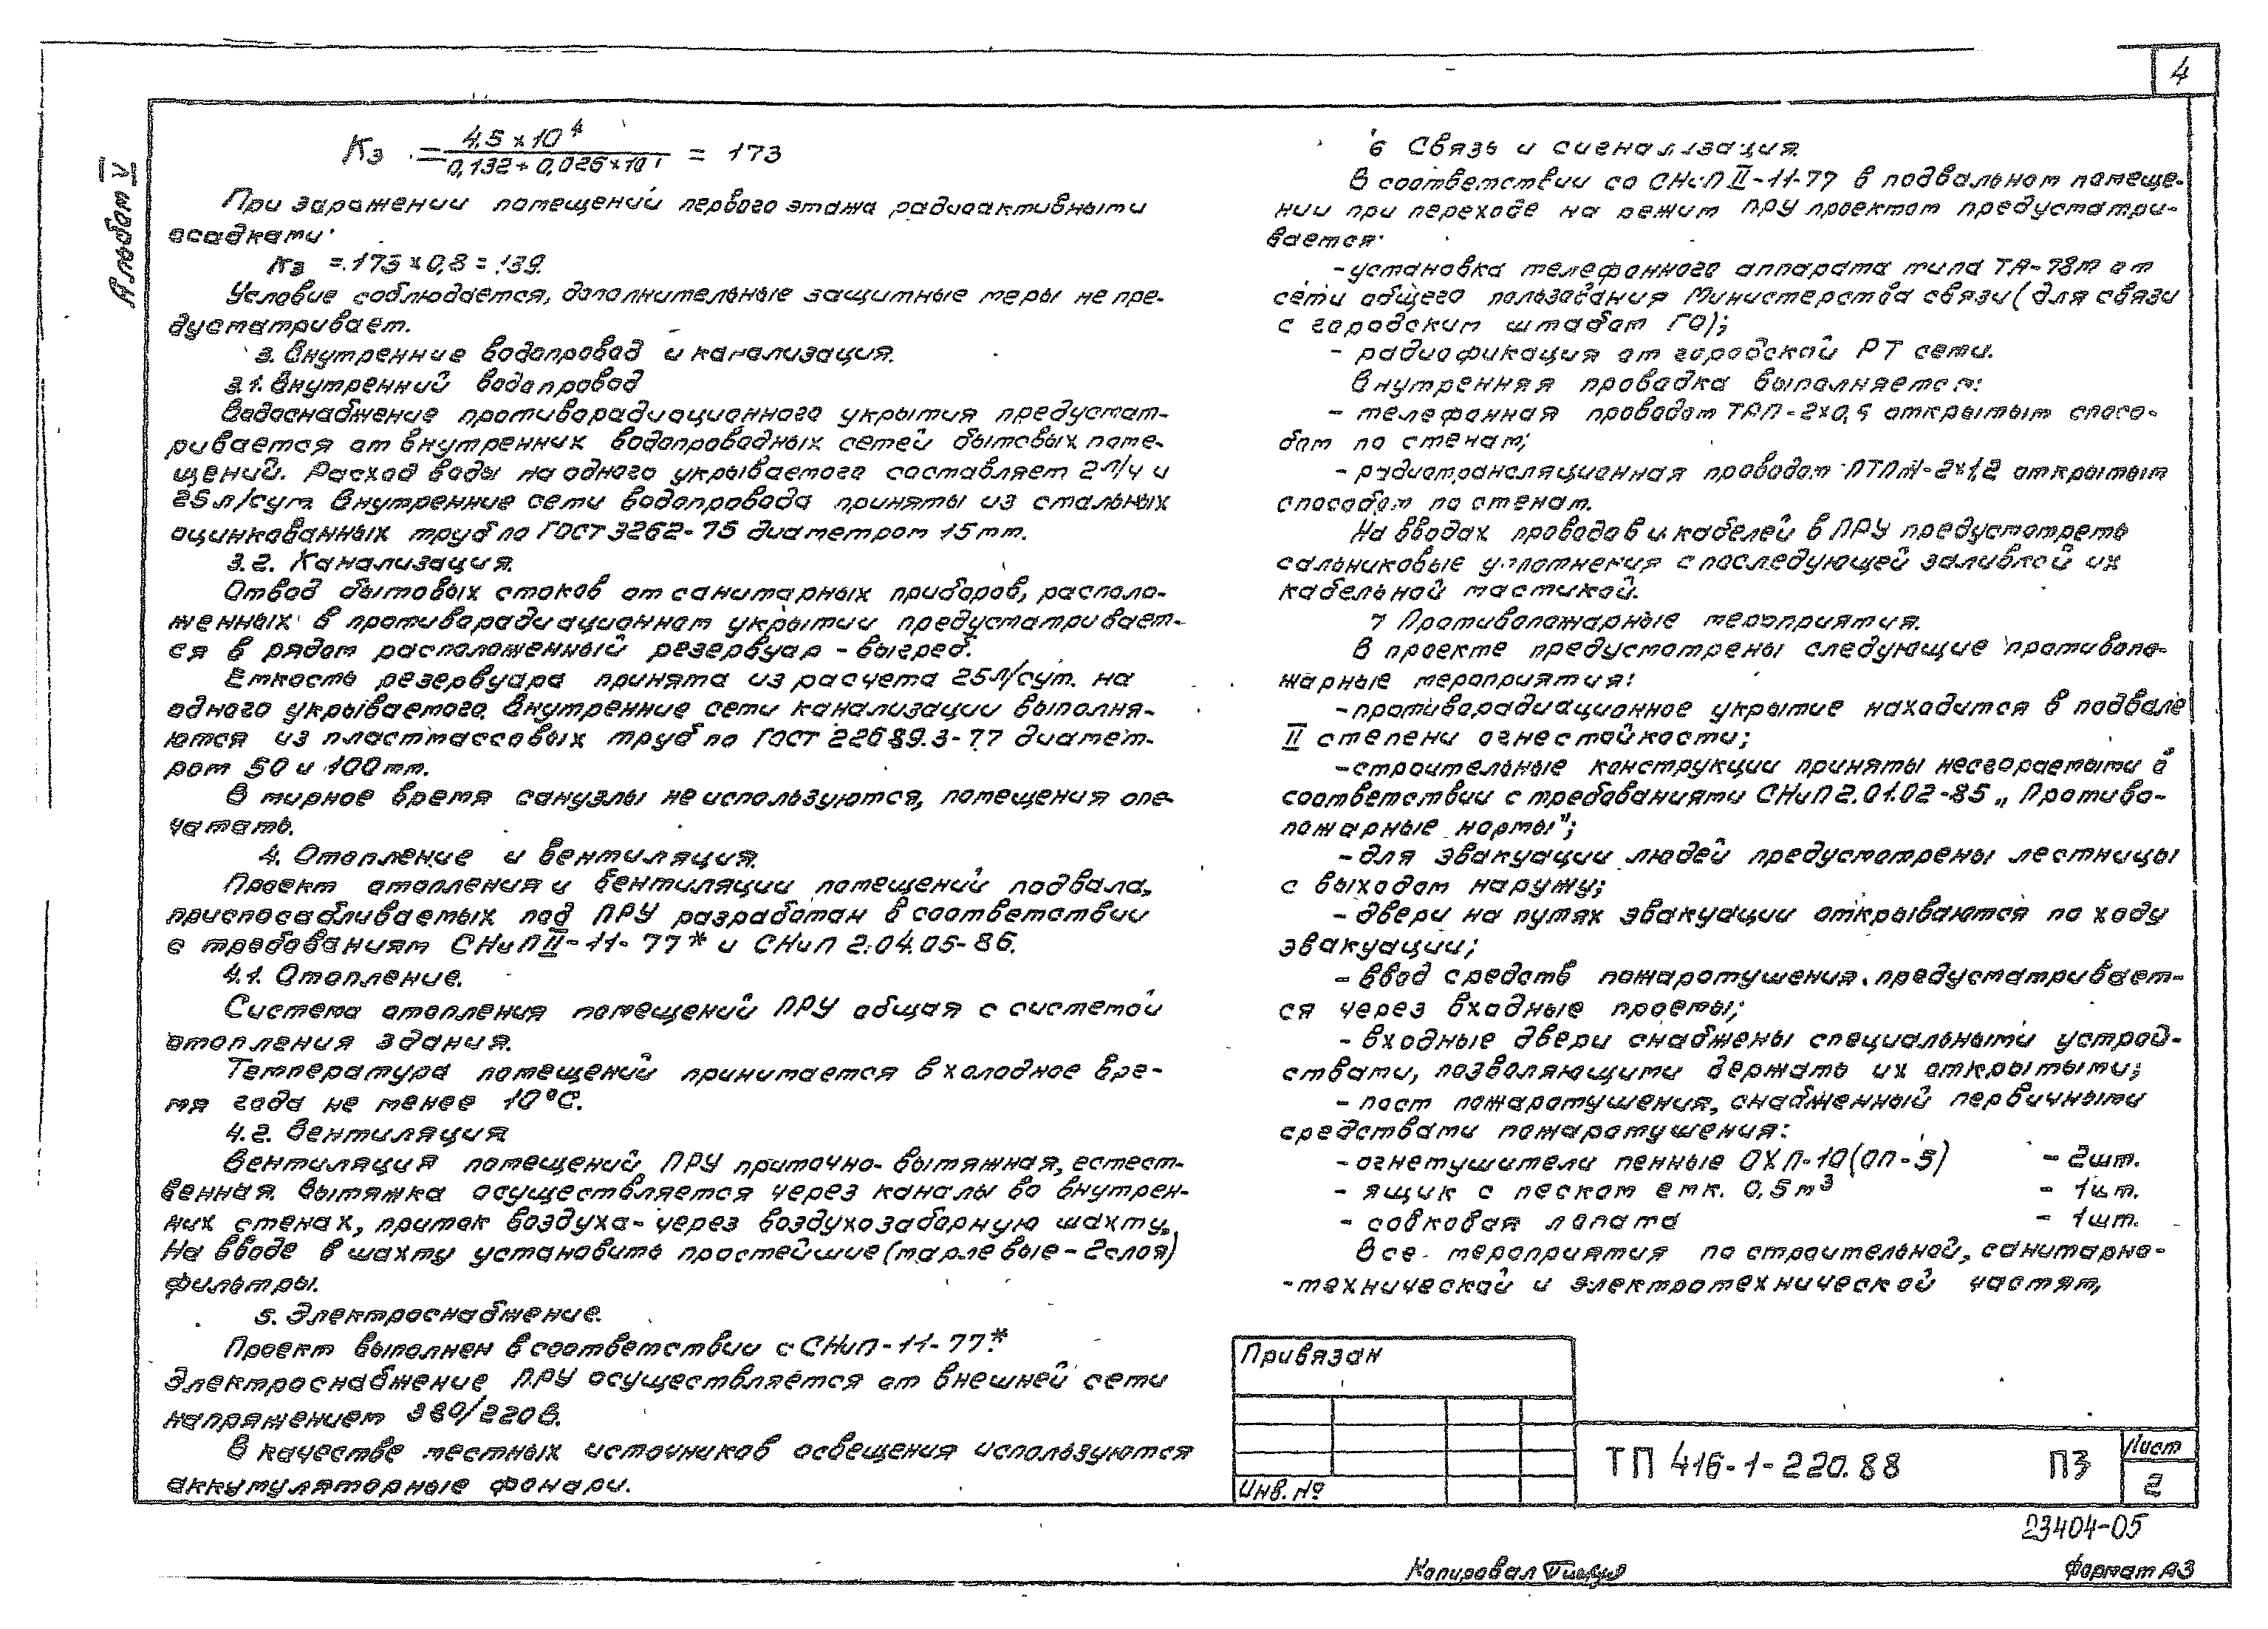 4
Альбом V
Кз = 4,5 × 10⁴ / 0,132 + 0,026 × 10¹ = 173
При заражении помещений первого этажа радиоактивными
осадками
Кз = 173 × 0,8 = 139.
Условие соблюдается, дополнительные защитные меры не пре-
дусматривает.
3. Внутренние водопровод и канализация.
3.1. Внутренний водопровод
Водоснабжение противорадиационного укрытия предусмат-
ривается от внутренних водопроводных сетей бытовых поме-
щений. Расход воды на одного укрываемого составляет 2л/ч и
25 л/сут. Внутренние сети водопровода приняты из стальных
оцинкованных труб по ГОСТ 3262-75 диаметром 15мм.
3.2. Канализация.
Отвод бытовых стоков от санитарных приборов, располо-
женных в противорадиационном укрытии предусматривает-
ся в рядом расположенный резервуар - выгреб.
Емкость резервуара принята из расчета 25л/сут. на
одного укрываемого. Внутренние сети канализации выполня-
ются из пластмассовых труб по ГОСТ 22689.3-77 диамет-
ром 50 и 100мм.
В мирное время санузлы не используются, помещения опе-
чатать.
4. Отопление и вентиляция.
Проект отопления и вентиляции помещений подвала,
приспосабливаемых под ПРУ разработан в соответствии
с требованиям СНиП II-11-77* и СНиП 2.04.05-86.
4.1. Отопление.
Система отопления помещений ПРУ общая с системой
отопления здания.
Температура помещений принимается в холодное вре-
мя года не менее 10°С.
4.2. Вентиляция
Вентиляция помещений ПРУ приточно-вытяжная, естест-
венная. Вытяжка осуществляется через каналы во внутрен-
них стенах, приток воздуха - через воздухозаборную шахту.
На вводе в шахту установить простейшие (марлевые - 2слоя)
фильтры.
5. Электроснабжение.
Проект выполнен в соответствии с СНиП-11-77*.
Электроснабжение ПРУ осуществляется от внешней сети
напряжением 380/220В.
В качестве местных источников освещения используются
аккумуляторные фонари.
6 Связь и сигнализация.
В соответствии со СНиП II-11-77 в подвальном помеще-
нии при переходе на режим ПРУ проектом предусматри-
вается:
- установка телефонного аппарата типа ТА-78м от
сети общего пользования Министерства связи (для связи
с городским штабом ГО);
- радиофикация от городской РТ сети.
Внутренняя проводка выполняется:
- телефонная проводом ТРП-2×0,5 открытым спосо-
бом по стенам;
- радиотрансляционная проводом ПТПЖ-2×1,2 открытым
способом по стенам.
На вводах проводов и кабелей в ПРУ предусмотреть
сальниковые уплотнения с последующей заливкой их
кабельной мастикой.
7 Противопожарные мероприятия.
В проекте предусмотрены следующие противопо-
жарные мероприятия:
- противорадиационное укрытие находится в подвале
II степени огнестойкости;
- строительные конструкции приняты несгораемыми в
соответствии с требованиями СНиП 2.01.02-85 „Противо-
пожарные нормы";
- для эвакуации людей предусмотрены лестницы
с выходом наружу;
- двери на путях эвакуации открываются по ходу
эвакуации;
- ввод средств пожаротушения предусматривает-
ся через входные проемы;
- входные двери снабжены специальными устрой-
ствами, позволяющими держать их открытыми;
- пост пожаротушения, снабженный первичными
средствами пожаротушения:
- огнетушители пенные ОХП-10(ОП-5) - 2шт.
- ящик с песком емк. 0,5м³ - 1шт.
- совковая лопата - 1шт.
Все мероприятия по строительной, санитарно-
-технической и электротехнической частям,
Привязан
Инв. №
ТП 416-1-220.88 ПЗ
Лист
2
23404-05
Копировал
Формат А3